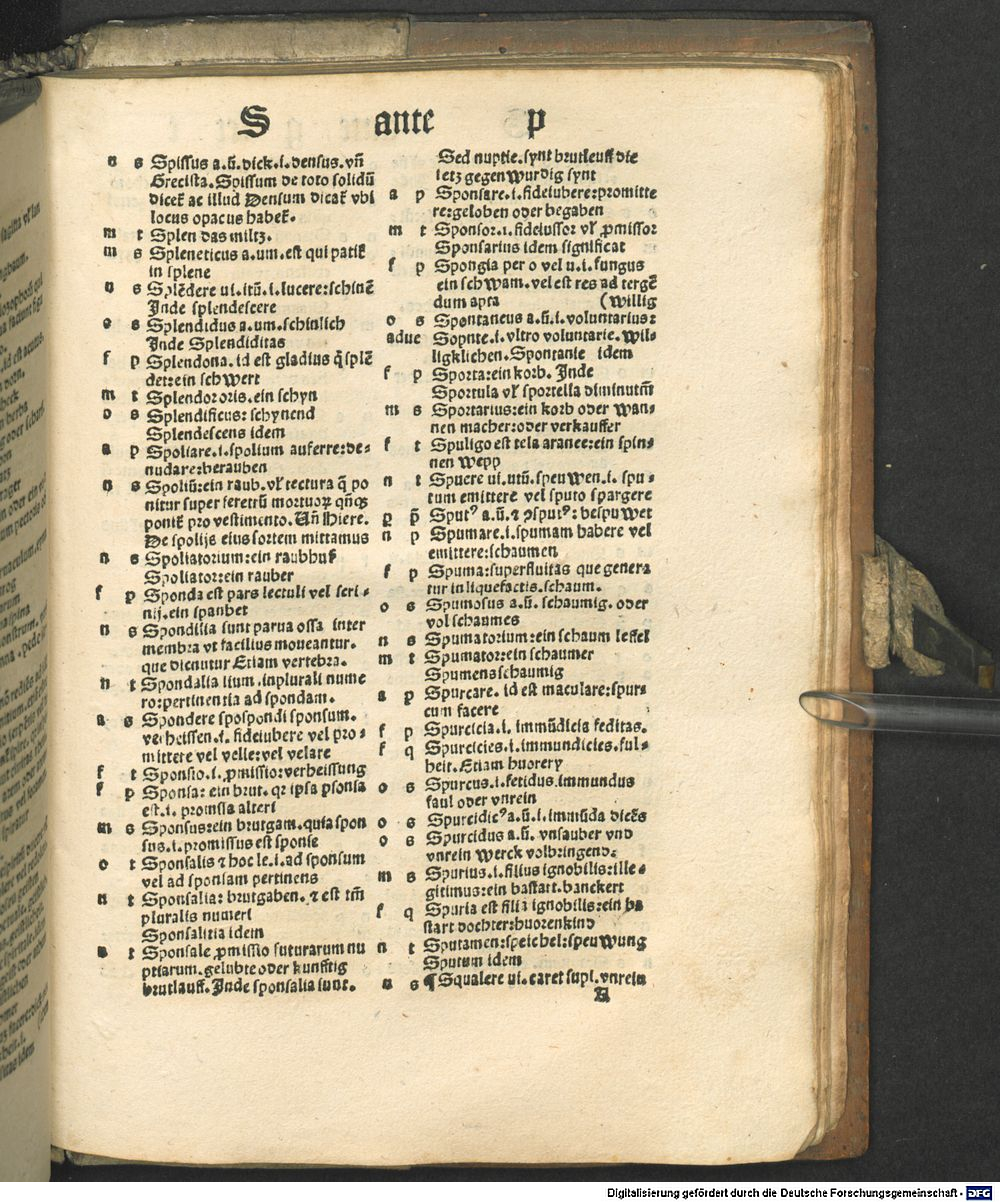 S ante p
o s Spissus a.ū.dick.i.densus.vñ
Grecista.Spissum de toto solidū
dicet̄ ac illud Densum dicat̄ vbi
locus opacus habet̄.
m t Splen das miltz.
m s Spleneticus a.um.est qui patit̄
in splene
n s Splēdere ui.itū.i.lucere:schinē
Inde splendescere
o s Splendidus a.um.schinlich
Inde Splendiditas
f p Splendona.id est gladius q̄ splē
det:ein schwert
m t Splendor oris.ein schyn
o s Splendificus:schynend
Splendescens idem
a p Spoliare.i.spolium auferre:de-
nudare:berauben
n s Spoliū:ein raub.vl̄ tectura q̄ po
nitur super feretrū mortuoꝝ qn̄qꝫ
ponit̄ pro vestimento.Uñ Hiere.
De spolijs eius sortem mittamus
n s Spoliatorium:ein raubhuß
Spoliator:ein rauber
f p Sponda est pars lectuli vel scri-
nij.ein spanbet
n s Spondilia sunt parua ossa inter
membra vt facilius moueantur.
que dicuntur Etiam vertebra.
n t Spondalia lium.inplurali nume
ro:pertinentia ad spondam.
a s Spondere spospondi sponsum.
verheissen.i.fideiubere vel pro-
mittere vel velle:vel velare
f t Sponsio.i.ꝓmissio:verheissung
f p Sponsa: ein brut.qr ipsa psonsa
est.i.promissa alteri
m s Sponsus:ein brutgam.quia spon
sus.i.promissus est sponse
o t Sponsalis ⁊ hoc le.i.ad sponsum
vel ad sponsam pertinens
n t Sponsalia: brutgaben.⁊ est tm̄
pluralis numeri
Sponsalitia idem
n t Sponsale ꝓmissio futurarum nu
ptiarum.gelubte oder kunfftig
brutlauff.Inde sponsalia sunt.
Sed nuptie.synt brutleuff die
ietz gegenwurdig synt
a p Sponsare.i.fideiubere:promitte
re:geloben oder begaben
m t Sponsor.i.fideiussor vl̄ ꝓmissor
Sponsarius idem significat
f p Spongia per o vel u.i.fungus
ein schwam.vel est res ad tergē
dum apta (willig
o s Spontaneus a.ū.i.voluntarius:
adue Sopnte.i.vltro voluntarie.wil-
ligklichen.Spontanie idem
f p Sporta:ein korb. Inde
Sportula vl̄ sportella diminutiū
m s Sportarius:ein korb oder wan-
nen macher:oder verkauffer
f t Spuligo est tela aranee:ein spin-
nen wepp
n t Spuere ui.utū.speuwen.i.spu-
tum emittere vel sputo spargere
ꝑ p̄ Sputꝰ a.ū.⁊ ꝯsputꝰ: bespuwet
n p Spumare.i.spumam habere vel
emittere:schaumen
f p Spuma:superfluitas que genera
tur in liquefactis.schaum.
o s Spumosus a.ū.schaumig.oder
vol schaumes
n s Spumatorium:ein schaum leffel
m t Spumator:ein schaumer
Spumens schaumig
a p Spurcare. id est maculare:spur-
cum facere
f p Spurcicia.i.immūdicia feditas.
f q Spurcicies.i.immundicies.ful-
heit.Etiam huorery
o s Spurcus.i.fetidus.immundus
faul oder vnrein
o s Spurcidicꝰ a.ū.i.immūda dicēs
o s Spurcidus a.ū. vnsauber vnd
vnrein werck volbringend:
m s Spurius.i.filius ignobilis:ille-
gitimus:ein bastart.banckert
f q Spuria est filia ignobilis:ein ba
start dochter:huorenkind
n t Sputamen:speichel:speuwung
Sputum idem
n s ¶Squalere ui.caret supi.vnrein
Digitalisierung gefördert durch die Deutsche Forschungsgemeinschaft - DFG